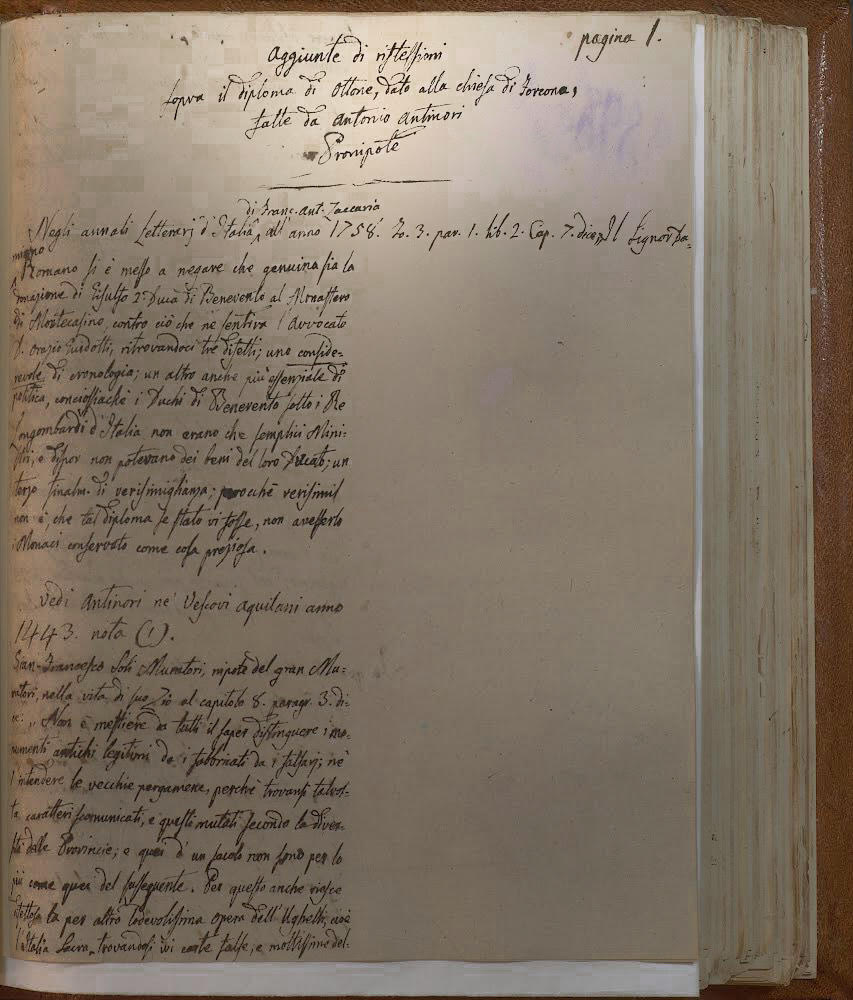 pagina 1.
Aggiunte di riflessioni
sopra il diploma di Ottone, dato alla chiesa di Forcona,
fatte da Antonio Antinori
Pronipote
di Franc. Ant. Zaccaria
Negli annali Letterarj d'Italia, all'anno 1758. To. 3. par. 1. lib. 2. Cap. 7. dice Il Signor Da=
miano
Romano si è messo a negare che genuina sia la
donazione di Gisulfo 2º Duca di Benevento al Monastero
di Montecasino, contro ciò che ne sentiva l'Avvocato
D. Orazio Guidotti, ritrovandoci tre difetti; uno conside=
revole di cronologia; un altro anche più essenziale di
politica, conciossiachè i Duchi di Benevento sotto i Re
Longombardi d'Italia non erano che semplici Mini=
stri, e dispor non potevano dei beni del loro Ducato; un
terzo finalm. di verisimiglianza; perocchè verisimil
non è, che tal diploma se stato vi fosse, non avesserlo
i Monaci conservato come cosa preziosa.
Vedi Antinori ne' Vescovi Aquilani anno
1443. nota (1).
Gian-Francesco Soli Muratori, nipote del gran Mu=
ratori, nella vita di suo Zio al capitolo 8. paragr. 3. di=
ce: „ Non è mestiere da tutti il saper distinguere i mo=
numenti antichi legitimi da i fabbricati da i falsarj; nè
l'intendere le vecchie pergamene, perchè trovansi talvol=
ta caratteri scomunicati, e questi mutati secondo la diver=
sità delle Provincie; e quei d'un secolo non sono per lo
più come quei del susseguente. Per questo anche riesce
difettosa la per altro lodevolissima opera dell'Ughelli, cioè
l'Italia Sacra, trovandosi ivi carte false, e moltissime del=